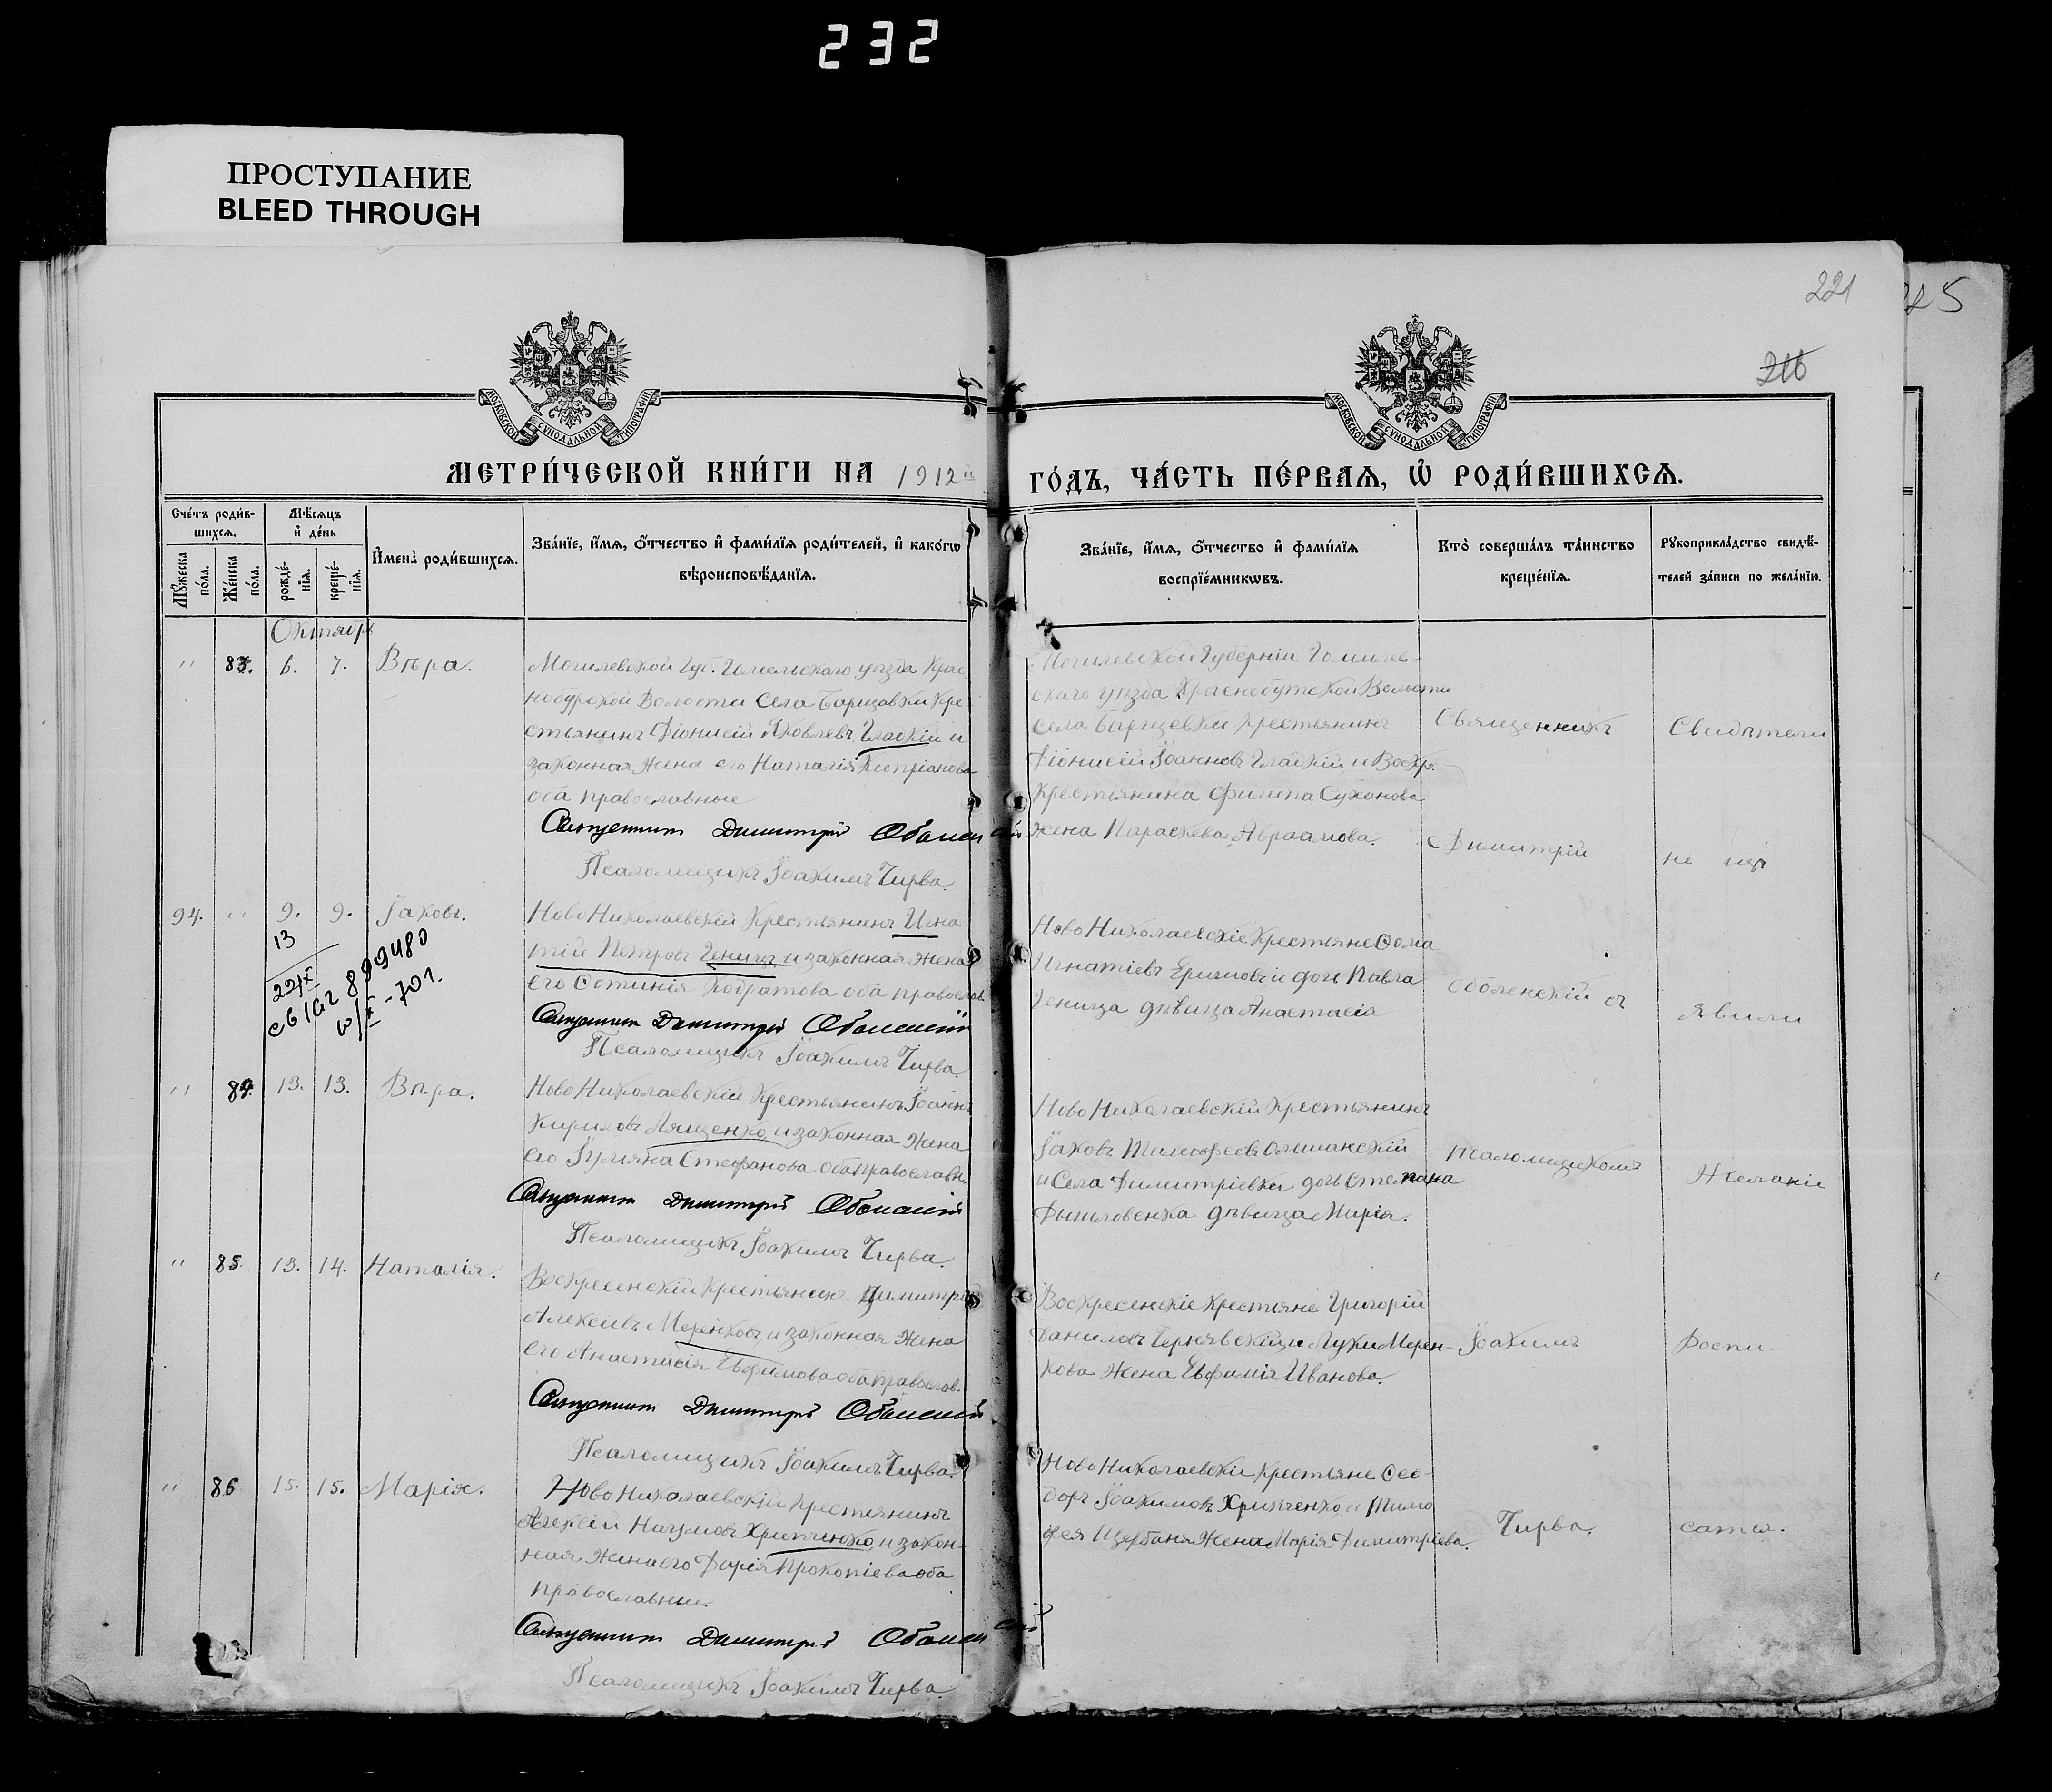 232
ПРОСТУПАНИЕ
BLEED THROUGH
221
225
216
МОСКОВСКОЙ СУНОДАЛЬНОЙ ТИПОГРАФІИ
МОСКОВСКОЙ СУНОДАЛЬНОЙ ТИПОГРАФІИ
МЕТРИ́ЧЕСКОЙ КНИ́ГИ НА 1912й ГО́ДЪ, ЧА́СТЬ ПЕ́РВАЯ, Ѡ҆ РОДИ́ВШИХСЯ.
Сче́тъ роди́вшихся.
Мѣ́сяцъ и҆ де́нь
Мꙋ́жеска по́ла.
Же́нска по́ла.
рожде́нїя.
креще́нїя.
И҆мена̀ роди́вшихся.
Зва́нїе, и҆́мя, ѻ҆́тчество и҆ фами́лїя роди́телей, и҆ како́гѡ
вѣроисповѣ́данїя.
Зва́нїе, и҆́мя, ѻ҆́тчество и҆ фами́лїя
воспрїе́мникѡвъ.
Кто̀ соверша́лъ та́инство
креще́нїя.
Рꙋкоприкла́дство свидѣ́-
телей за́писи по жела́нїю.
Октябрь
" 83. 6. 7. Вѣра.
Могилевской Губ. Гомельскаго уѣзда Крас
нобудской Волости Села Борщовки Кре
стьянинъ Діонисій Яковлевъ Гладкій и
законная жена его Наталія Кипріанова
оба православные
Священникъ Димитрій Оболенскій
Псаломщикъ Іоакимъ Чирва.
Могилевской Губерніи Гомилев-
скаго уѣзда Краснобутской Волости
села Борщевки крестьянинъ
Діонисій Іоанновъ Гладкій и Воскр.
Крестьянина Филипа Суханова
жена Параскева Авраамова.
94. " 9. 9. Іаковъ.
13
св 1Аг 899480
70 г.
Ново Николаевскій Крестьянинъ Игна
тій Петровъ Геница и законная жена
его Фотинія Кодратова оба православ.
Священникъ Димитрій Оболенскій
Псаломщикъ Іоакимъ Чирва.
Ново Николаевскіе Крестьяне Фома
Игнатіевъ и дочь Павла
Геница дѣвица Анастасія
" 84. 13. 13. Вѣра.
Ново Николаевскій Крестьянинъ Іоаннъ
Кириловъ Лященко и законная жена
его Іуліяна Стефанова оба православн.
Священникъ Димитрій Оболенскій
Псаломщикъ Іоакимъ Чирва.
Ново Николаевскій Крестьянинъ
Іаковъ Тимофеевъ Ольшанскій
и Села Димитріевки дочь Степана
дѣвица Марія.
" 85. 13. 14. Наталія.
Воскресенскій Крестьянинъ Димитрій
Алексіевъ Меренковъ и законная жена
его Анастасія Евфимова оба православ.
Священникъ Димитрій Оболенскій
Псаломщикъ Іоакимъ Чирва.
Воскресенскіе Крестьяне Григорій
Даниловъ Чернявскій и Луки Мерен-
кова жена Евфимія Иванова.
" 86 15. 15. Марія.
Ново Николаевскій Крестьянинъ
Алексій Наумовъ Хрипченко и закон-
ная жена его Дарія Прокопіева оба
православные.
Священникъ Димитрій Оболенскій
Псаломщикъ Іоакимъ Чирва.
Ново Николаевскіе Крестьяне Фео-
доръ Іоакимовъ Хрипченко и Тимо
фея Щербаня жена Марія Димитріева.
Священникъ
Димитрій
Оболенскій съ
псаломщикомъ
Іоакимъ
Чирва.
Свидѣтели
не изъ
явили
Желаніе
роспи-
сатся.